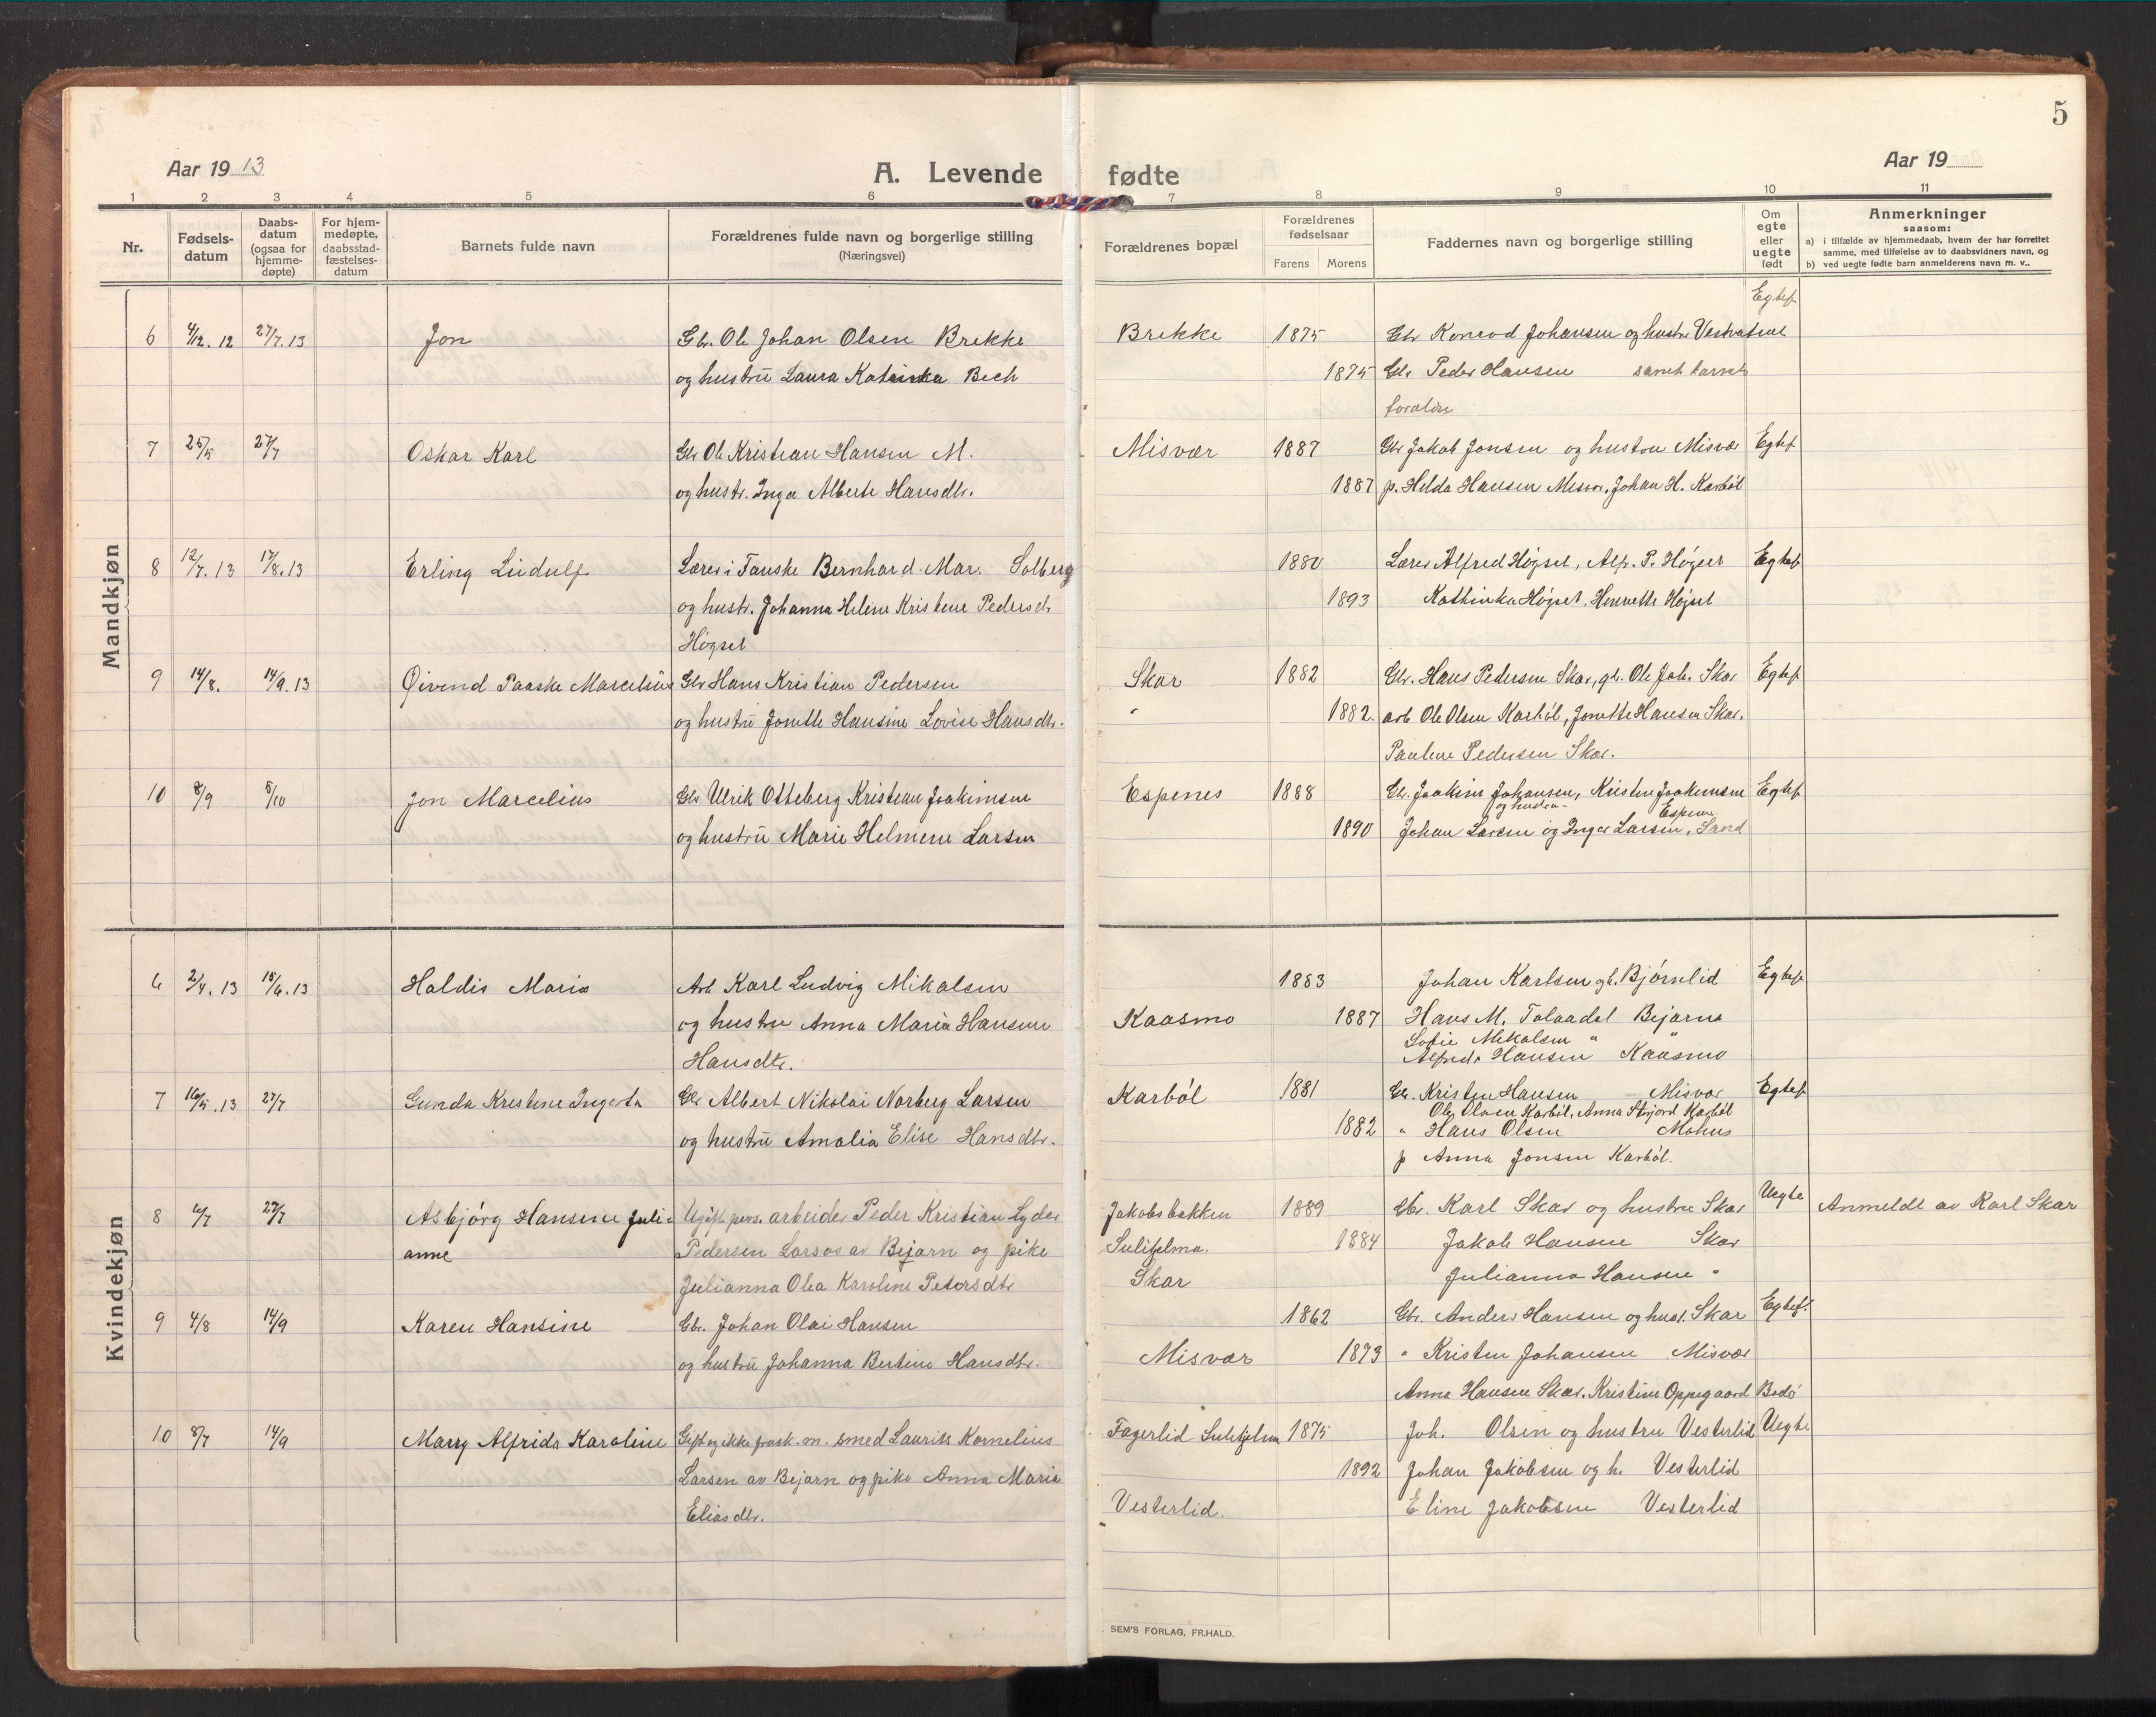 5
Aar 19 13
A. Levende fødte
Aar 19
1 2 3 4 5 6 7 8 9 10 11
Nr.
Fødsels-
datum
Daabs-
datum
(ogsaa for
hjemme-
døpte)
For hjem-
medøpte,
daabsstad-
fæstelses-
datum
Barnets fulde navn
Forældrenes fulde navn og borgerlige stilling
(Næringsvei)
Forældrenes bopæl
Forældrenes
fødselsaar
Farens Morens
Faddernes navn og borgerlige stilling
Om
egte
eller
uegte
født
Anmerkninger
saasom:
a) i tilfælde av hjemmedaab, hvem der har forrettet
samme, med tilføielse av to daabsvidners navn, og
b) ved uegte fødte barn anmelderens navn m. v..
Mandkjøn
Egtef
6 4/12. 12 27/7. 13 Jon Gbr. Ole Johan Olsen Brekke Brekke 1875 Gbr Konrad Johansen og hustru Vestvatne
og hustrü Laura Katinka Bech 1875 Gbr Peder Hansen samt barnets
forældre
7 25/5 27/7 Oskar Karl Gbr Ole Kristian Hansen M. Misvær 1887 Gbr Jakob Jonsen og hustru Misvær Egtef
og hustr. Inga Alberte Hansdtr. 1887 p. Helda Hansen Misvær, Johan H. Karbøl
8 12/7. 13 17/8. 13 Erling Lüdulf Lærer i Fauske Bernhard Mar. Solberg 1880 Lærer Alfred Høgset, Alfr. P. Høgset Egtef
og hustr. Johanna Helene Kristene Pedersdr 1893 Kathinka Høgset, Henrette Høgset
Høgset
9 14/8. 14/9. 13 Øivend Paaske Marcelius Gbr Hans Kristian Pedersen Skar 1882 Gbr. Hans Pedersen Skar, gb. Ole Joh. Skar Egtef
og hustrü Jonette Hansine Lovise Hansdtr. " 1882. arb Ole Olsen Karbøl, Jonette Hansen Skar.
Paulene Pedersen Skar.
10 8/9 5/10 Jon Marcelius Gbr Ulrik Otteberg Kristian Joakimsen Espenes 1888 Gbr. Joakim Johansen, Kristen Joakimsen Egtef
og hustru Espenes
og hustrü Marie Helmene Larsen 1890 Johan Larsen og Inger Larsen, Sand
Kvindekjøn
6 2/4. 13 15/6. 13 Haldis Maria Arb Karl Ludvig Mikalsen 1883 Johan Karlsen gb. Bjørnlid Egtef
og hustru Anna Maria Hansen Kaasmo 1887 Hans M. Tolaadal Bejarn
Hansdtr. Sofie Mikalsen "
Alfreda Hansen Kaasmo
7 16/5. 13 27/7 Gunda Kristine Ingerta Gbr Albert Nikolai Norberg Larsen Karbøl 1881 Gb. Kristen Hansen Misvær Egtef
Ole Olsen Karbøl, Anna Storjord Karbøl
og hustrü Amalia Elise Hansdtr. 1882 " Hans Olsen Mohus
p Anna Jonsen Karbøl.
8 6/7 27/7 Asbjørg Hansene Juli- Ugift pers. arbeider Peder Kristian Lyder Jakobsbakken 1889 Gbr. Karl Skar og hustru Skar Uegte Anmeldt av Karl Skar
anne Pedersen Larsos av Bejarn og pike Sulitjelma. 1884 Jakob Hansen Skar
Julianna Olea Karoline Petersdtr Skar Julianna Hansen "
9 4/8 14/9 Karen Hansine Gbr. Johan Olai Hansen 1862 Gbr. Anders Hansen og hust. Skar Egtef.
og hustrü Johanna Bertine Hansdtr. Misvær 1873 " Kristen Johansen Misvær
Anna Hansen Skar. Kristine Oppegaard Bodø
10 8/7 14/9 Marry Alfrida Karoline Gift og ikke frask. m. smed Laurits Kornelius Fagerlid Sulitjelma 1875 Joh. Olsen og hustru Vesterlid Uegte
Larsen av Bejarn og pike Anna Maria 1892 Johan Jakobsen og h. Vesterlid
Eliasdtr. Vesterlid. Eline Jakobsen Vesterlid
SEM'S FORLAG, FR.HALD.